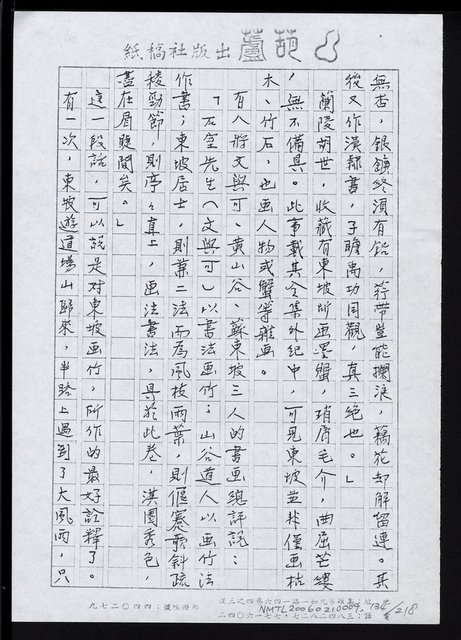 紙稿社版出 蘆葫
無杏，銀鐮終須有鉛，荇帶豈能攔浪，藕花却解留連。其
後又作漢隸書，子瞻禹功同觀，真三絶也。」
蘭陵胡世，收藏有東坡所画墨蟹，瑣屑毛介，曲屈芒縷
，無不備具。此事載其今集外紀中，可見東坡並非僅画枯
木、竹石，也画人物或蟹等雜画。
有人將文與可、黃山谷、蘇東坡三人的書画總評說：
「石室先生（文與可）以書法画竹；山谷道人以画竹法
作書；東坡居士，則兼二法而為風枝雨葉，則偃蹇欹斜疏
稜勁節，則亭々直上，画法書法，具於此卷，淇園秀色，
盡在眉睫間矣。」
這一段話，可以說是对東坡画竹，所作的最好詮釋了。
有一次，東坡遊道場山歸來，半路上遇到了大風雨，只
NMTL20060210009,
134/218